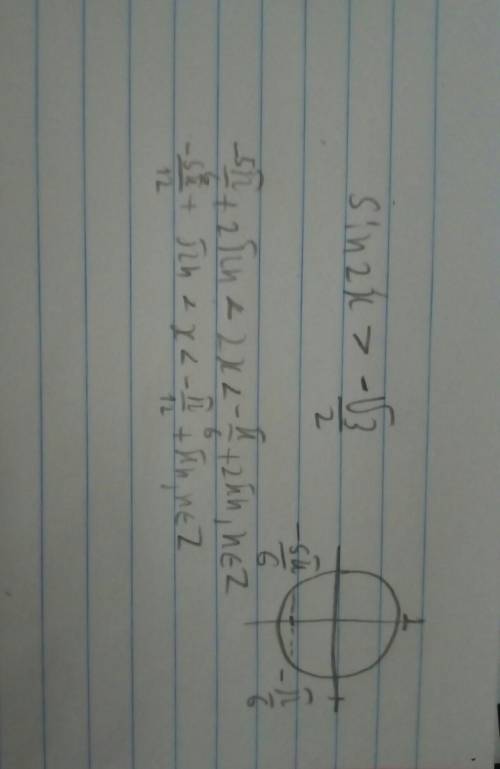 sin 2x > -√3/2
-5π/6 + 2πn < 2x < -π/6 + 2πn, n ∈ Z
-5π/12 + πn < x < -π/12 + πn, n ∈ Z
-5π/6
-π/6